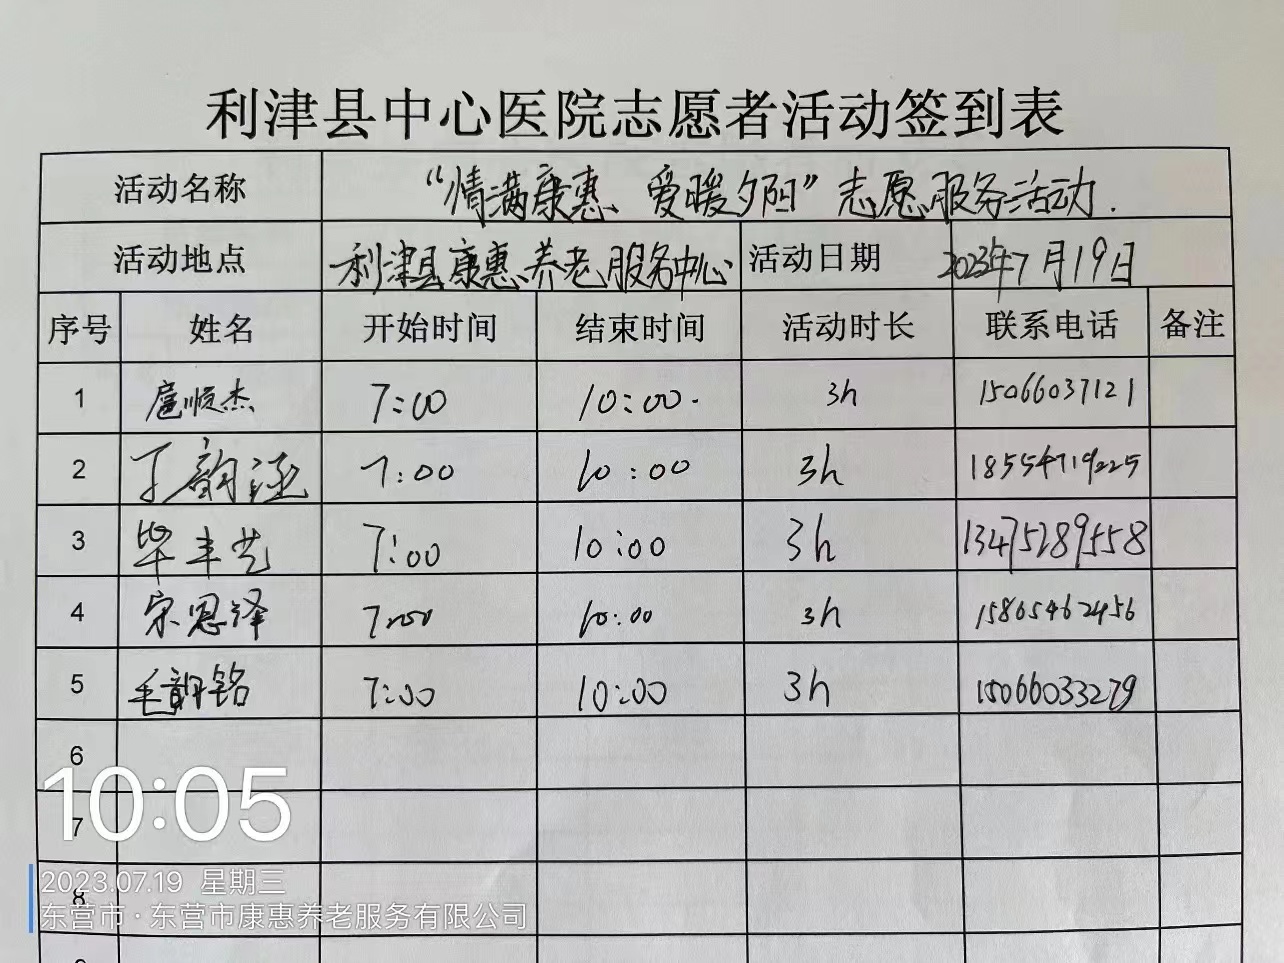 利津县中心医院志愿者活动签到表
活动名称 “情满康惠、爱暖夕阳”志愿服务活动.
活动地点 利津县康惠养老服务中心 活动日期 2023年7月19日
序号 姓名 开始时间 结束时间 活动时长 联系电话 备注
1 扈顺杰 7:00 10:00. 3h 15066037121
2 丁韵涵 7:00 10:00 3h 18554719225
3 毕丰艺 7:00 10:00 3h 13475289558
4 宋恩泽 7:00 10:00 3h 15865462456
5 毛韵铭 7:00 10:00 3h 15066033279
6
10:05
7
2023.07.19 星期三
8
东营市·东营市康惠养老服务有限公司